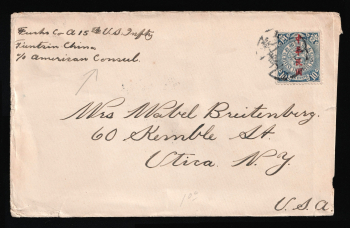 Co A 15th U.S. Inft'y
Tientsin China
c/o American Consul.
Mrs Mabel Breitenberg.
60 Kemble St.
Utica. N.Y.
U.S.A.